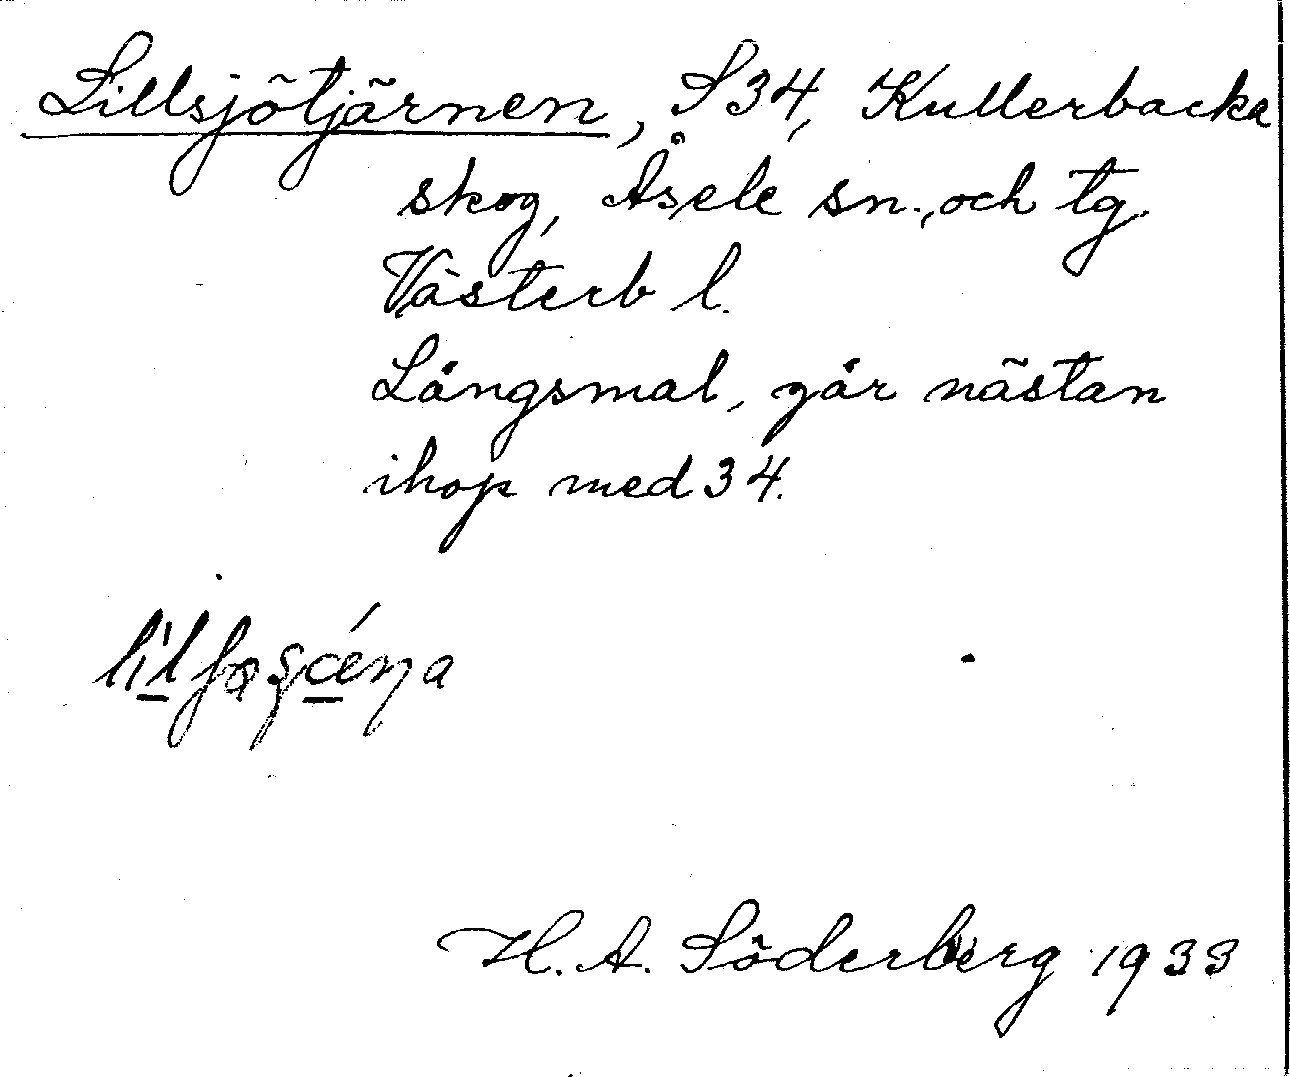 Lillsjötjärnen, S 34, Kullerbacka
skog, Åsele sn., och tg.
Västerb l.
Långsmal, går nästan
ihop med 34.
H. A. Söderberg 1933